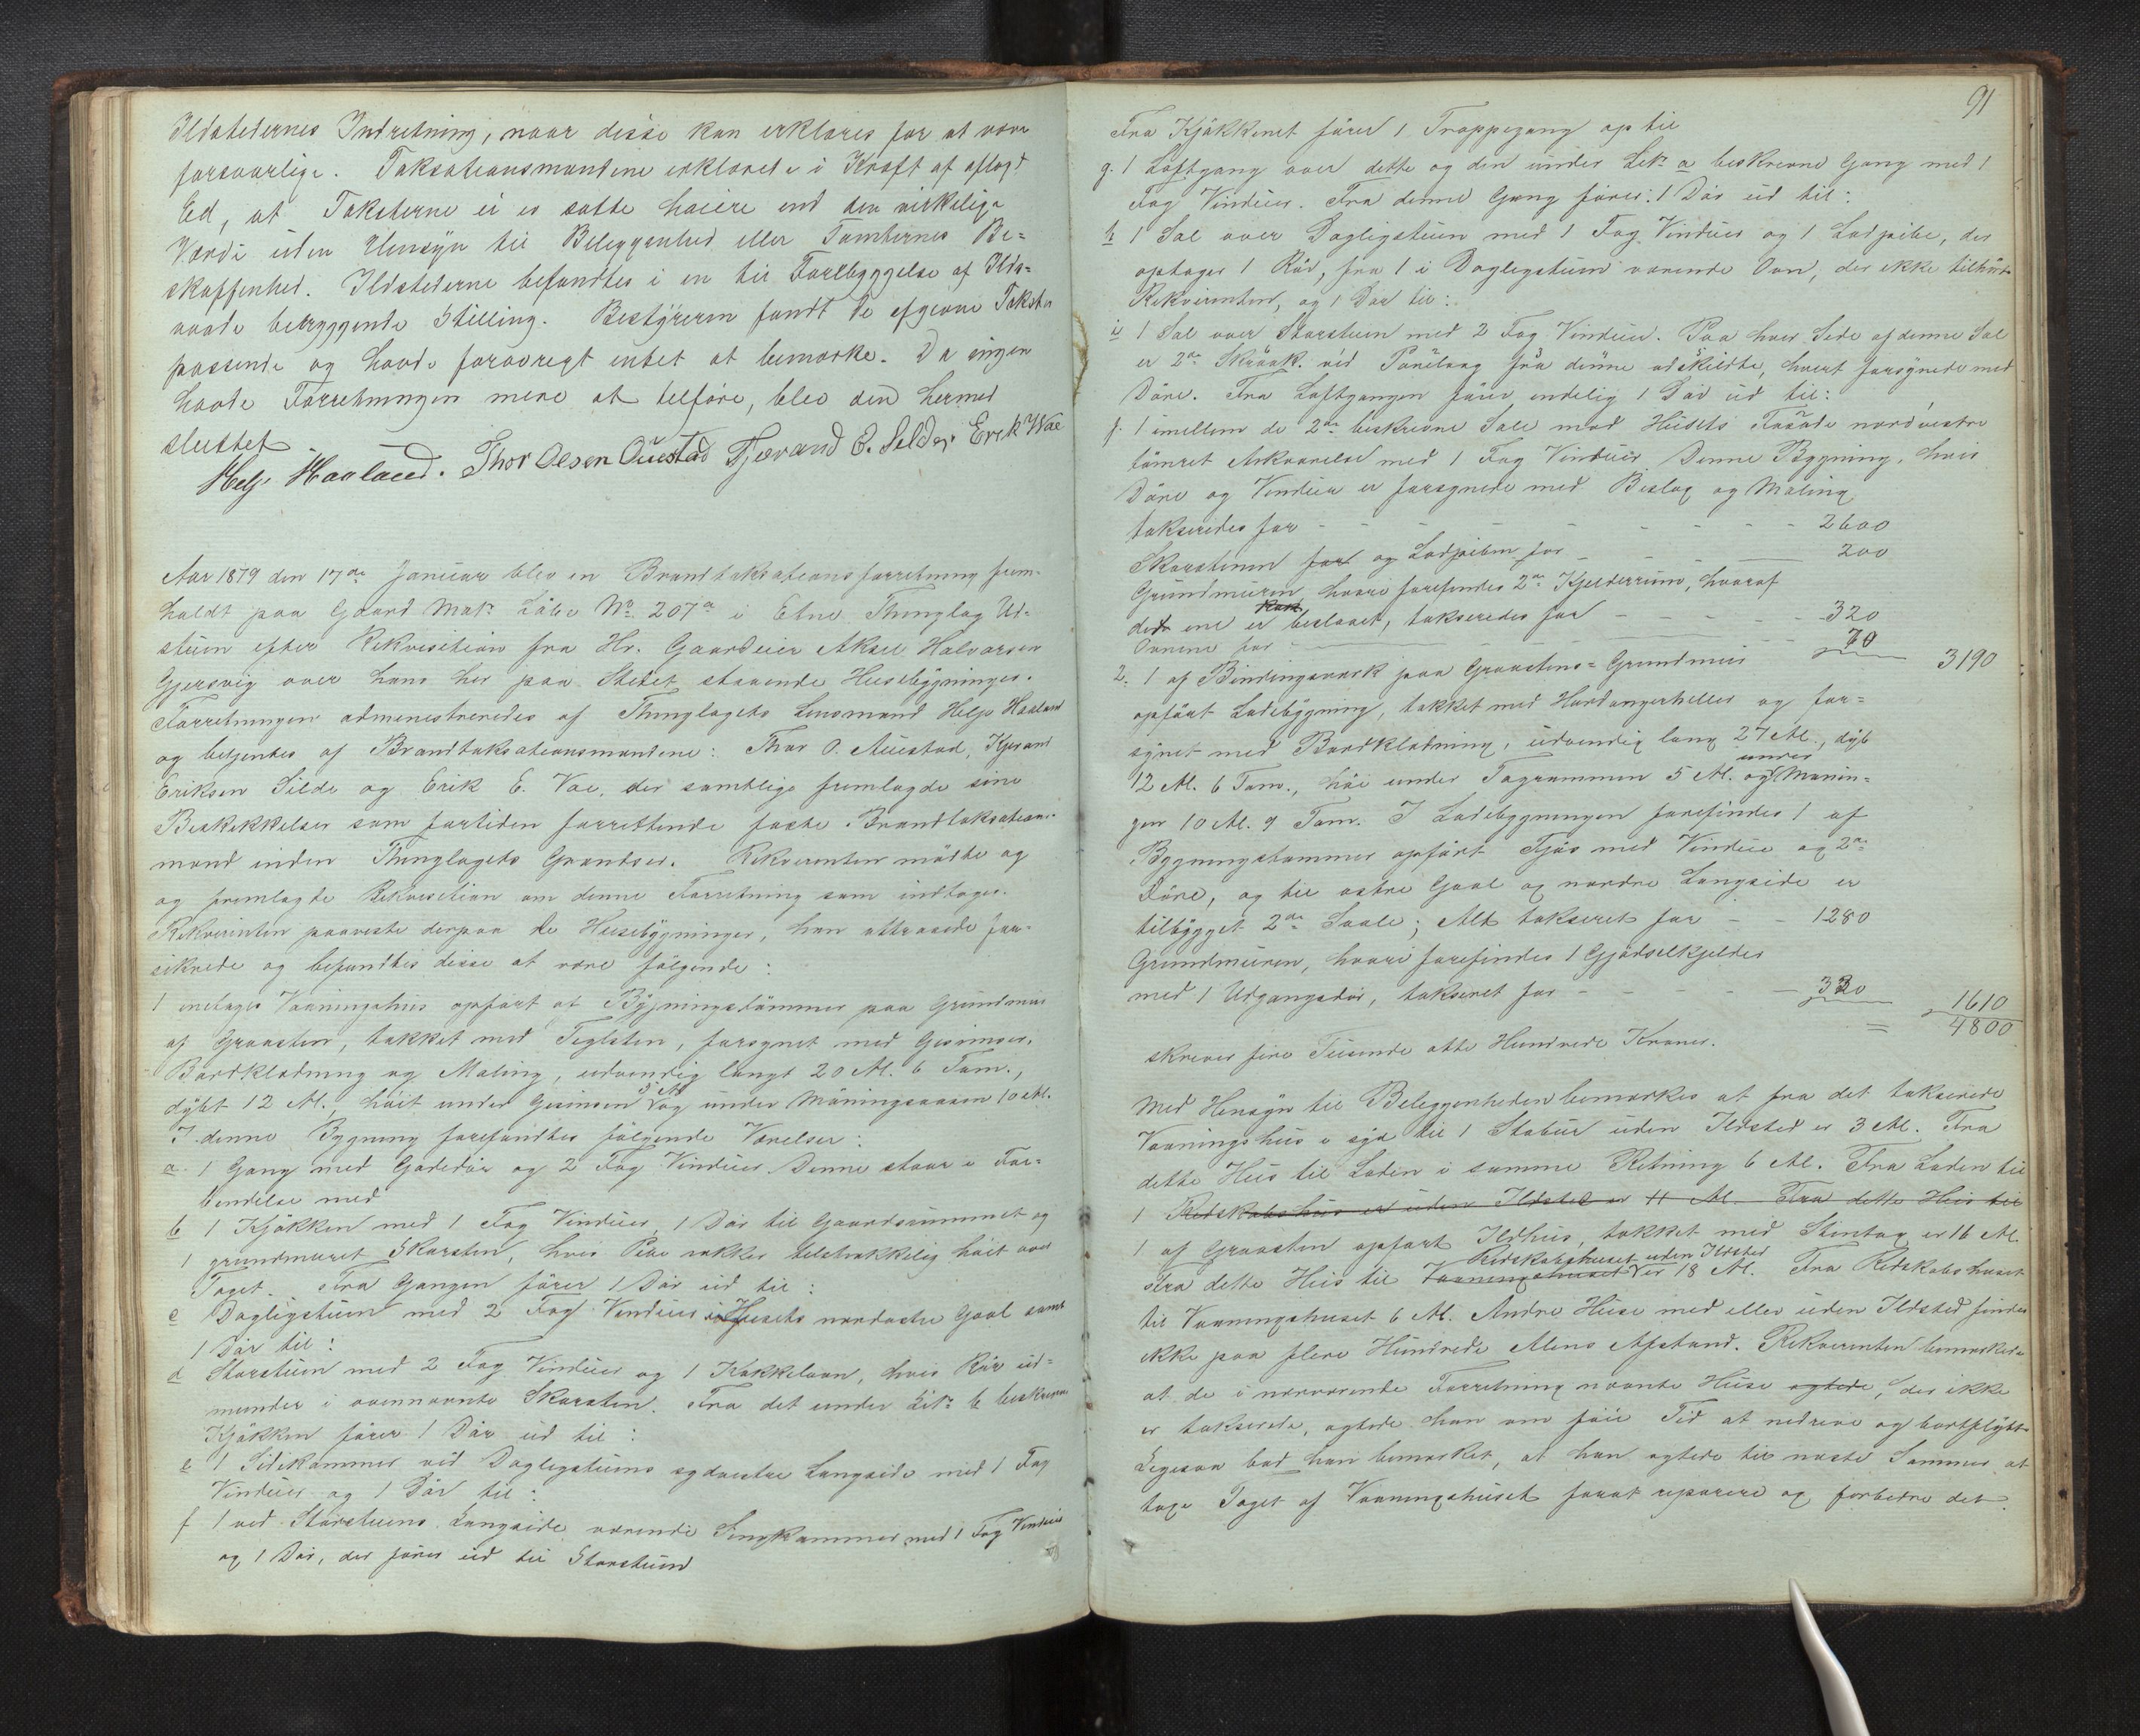 Ildstedernes Indretning, naar disse kan erklæres for at være
forsvarlige. Taksationsmændene erklærede i Kraft af aflagt
Ed, at Taksterne ei er satte høiere end den virkelige
Værdi uden Hensyn til Beleggenhed eller Tomternes Be-
skaffenhed. Ildstederne befandtes i en til Forebyggelse af Ilds-
vaade betryggende Stilling. Bestyreren fandt de afgivne Takster
passende og havde forøvregt intet at bemærke. Da ingen
havde Forretningen mere at tilføre, blev den hermed
sluttet
Helje Haaland. Thor Olsen Ouestad Tjerand E. Silde Erik Vae
Aar 1879 den 17de Januar blev en Brandtaksationsforretning frem-
holdt paa Gaard Matr. Løbe No. 207a i Etne Thinglag Ud-
stuen efter Rekvisition fra Hr. Gaardeier Aksel Halvorsen
Gjersvig over hans her paa Stedet staaende Husebygninger.
Forretningen administreredes af Thinglagets Lensmand Helje Haaland
og betjentes af Brandtaksationsmændene: Thor O. Auestad, Tjerand
Eriksen Silde og Erik E. Vae, der samtlige fremlagde sine
Beskikkelser som fortiden forrettende faste Brandtaksations-
mænd inden Thinglagets Grændser. Rekvirenten mødte og
og fremlagde Rekvisition om denne Forretning som indtages.
Rekvirenten paaviste derpaa de Husebygninger, han attraaede for-
sikrede og befandtes disse at være følgende:
1 enetages Vaaningshus opført af Bygningstømmer paa Grundmur
af Graasten, tækket med Teglsten, forsynet med Gesimser,
Bordklædning og Maling, udvendig langt 20 Al. 6 Tom.,
dybt 12 Al., høit under Gesimsen 5 Al. og under Møningsaasen 10 Al.
I denne Bygning forefandtes følgende Værelser:
a. 1 Gang med Gadedør og 2 Fag Vinduer. Denne staar i For-
bindelse med
b 1 Kjøkken med 1 Fag Vinduer, 1 Dør til Gaardsrummet og
1 grundmuret Skorsten, hvis Pibe rækker tilstrækkelig høit over
Taget. Fra Gangen fører 1 Dør ud til:
c Dagligstuen med 2 Fag Vinduer i Husets nordøstre Gavl samt
1 Dør til:
d Storstuen med 2 Fag Vinduer og 1 Kakkelovn, hvis Rør ud-
munder i ovennævnte Skorsten. Fra det under Litr. b beskrevne
Kjøkken fører 1 Dør ud til:
e 1 Sidekammer ved Dagligstuens sydvestre Langside med 1 Fag
Vinduer og 1 Dør til:
f 1 ved Storstuens Langside værende Sengkammer med 1 Fag Vinduer
og 1 Dør, der fører ud til Storstuen
91
Fra Kjøkkenet fører 1 Trappegang op til
g. 1 Loftgang over dette og den under Litr. a beskrevne Gang med 1
Fag Vinduer. Fra denne Gang fører: 1 Dør ud til:
h 1 Sal over Dagligstuen med 1 Fag Vinduer og 1 Lodpibe, der
optager 1 Rør, fra 1 i Dagligstuen værende Ovn, der ikke tilhører
Rekvirenten, og 1 Dør til:
i 1 Sal over Storstuen med 2 Fag Vinduer. Paa hver Side af denne Sal
er 2de Skraak. ved Panelvæg fra denne adskildte, hvert forsynede med
Døre. Fra Loftgangen fører endelig 1 Dør ud til:
j. 1 imellem de 2de beskrevne Sale mod Husets Fasade nordvestre
tømret Arkværelse med 1 Fag Vinduer. Denne Bygning, hvis
Døre og Vinduer er forsynede med Beslag og Maling
takseredes for - - - - - 2600
Skorstenen for og Lodpiben for - - - 200
Grundmuren, hvori forefindes 2de Kjelderrum, hvoraf
det ene er beslaaet, takseredes for - - - 320
Ovnene for - - - 70 3190
2. 1 af Bindingsværk paa Graastens-Grundmur
opført Ladebygning, tækket med Hardangerheller og for-
synet med Bordklædning, udvendig lang 27 Al., dyb
12 Al. 6 Tom., høi under Tagrammen 5 Al. og under Mønin-
gen 10 Al. 9 Tom. I Ladebygningen forefindes 1 af
Bygningstømmer opført Fjøs med Vindue og 2de
Døre, og til østre Gavl og nordre Langside er
tilbygget 2de Svale; Alt takseret for - - 1280
Grundmuren, hvori forefindes 1 Gjødselkjelder
med 1 Udgangsdør, takseret for - - - 330 1610
= 4800
skrives fire Tusinde otte Hundrede Kroner.
Med Hensyn til Beleggenheden bemærkes at fra det takserede
Vaaningshus i syd til 1 Stabur uden Ildsted er 3 Al. Fra
dette Hus til Laden i samme Retning 6 Al. Fra Laden til
1 Redskabshus er uden Ildsted er 11 Al. Fra dette Hus til
1 af Graasten opført Ildhus, tækket med Stentag er 16 Al.
Redskabshuset uden Ildsted
Fra dette Hus til Vaaningshuset er 18 Al. Fra Redskabshuset
til Vaaningshuset 6 Al. Andre Huse med eller uden Ildsted findes
ikke paa flere Hundrede Alens Afstand. Rekvirenten bemærkede
at de i nærværende Forretning nævnte Huse agtede, der ikke
er takserede, agtede han om føie Tid at nedrive og bortflytte
Ligesaa bad han bemærket, at han agtede til næste Sommer at
tage Taget af Vaaningshuset forat reparere og forbedre det.